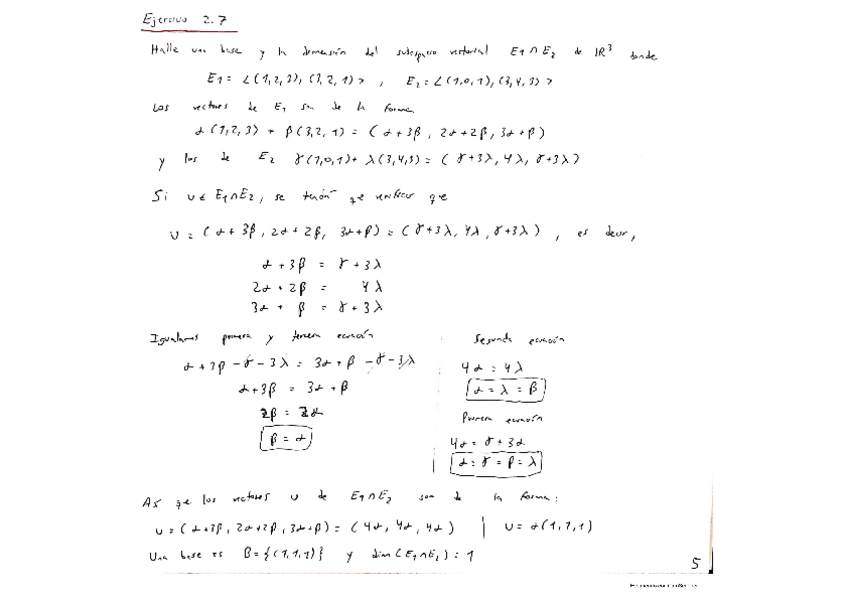 Ejercicio 2.7
Halle una base y la dimensión del subespacio vectorial E1∩E2 de IR³ donde
E1 = <(1,2,3), (3,2,1)> , E2 = <(1,0,1), (3,4,3)>
Los vectores de E1 son de la forma
α(1,2,3) + β(3,2,1) = (α+3β, 2α+2β, 3α+β)
y los de E2 γ(1,0,1) + λ(3,4,3) = (γ+3λ, 4λ, γ+3λ)
Si u ∈ E1∩E2, se tendrá que verificar que
u = (α+3β, 2α+2β, 3α+β) = (γ+3λ, 4λ, γ+3λ) , es decir,
α + 3β = γ + 3λ
2α + 2β = 4λ
3α + β = γ + 3λ
Igualamos primera y tercera ecuación
α + 3β - γ - 3λ = 3α + β - γ - 3λ
α + 3β = 3α + β
2β = 2α
β = α
Segunda ecuación
4α = 4λ
α = λ = β
Primera ecuación
4α = γ + 3α
α = γ = β = λ
Así que los vectores u de E1∩E2 son de la forma:
u = (α+3β, 2α+2β, 3α+β) = (4α, 4α, 4α) | u = α(1,1,1)
Una base es B = {(1,1,1)} y dim(E1∩E2) = 1
5